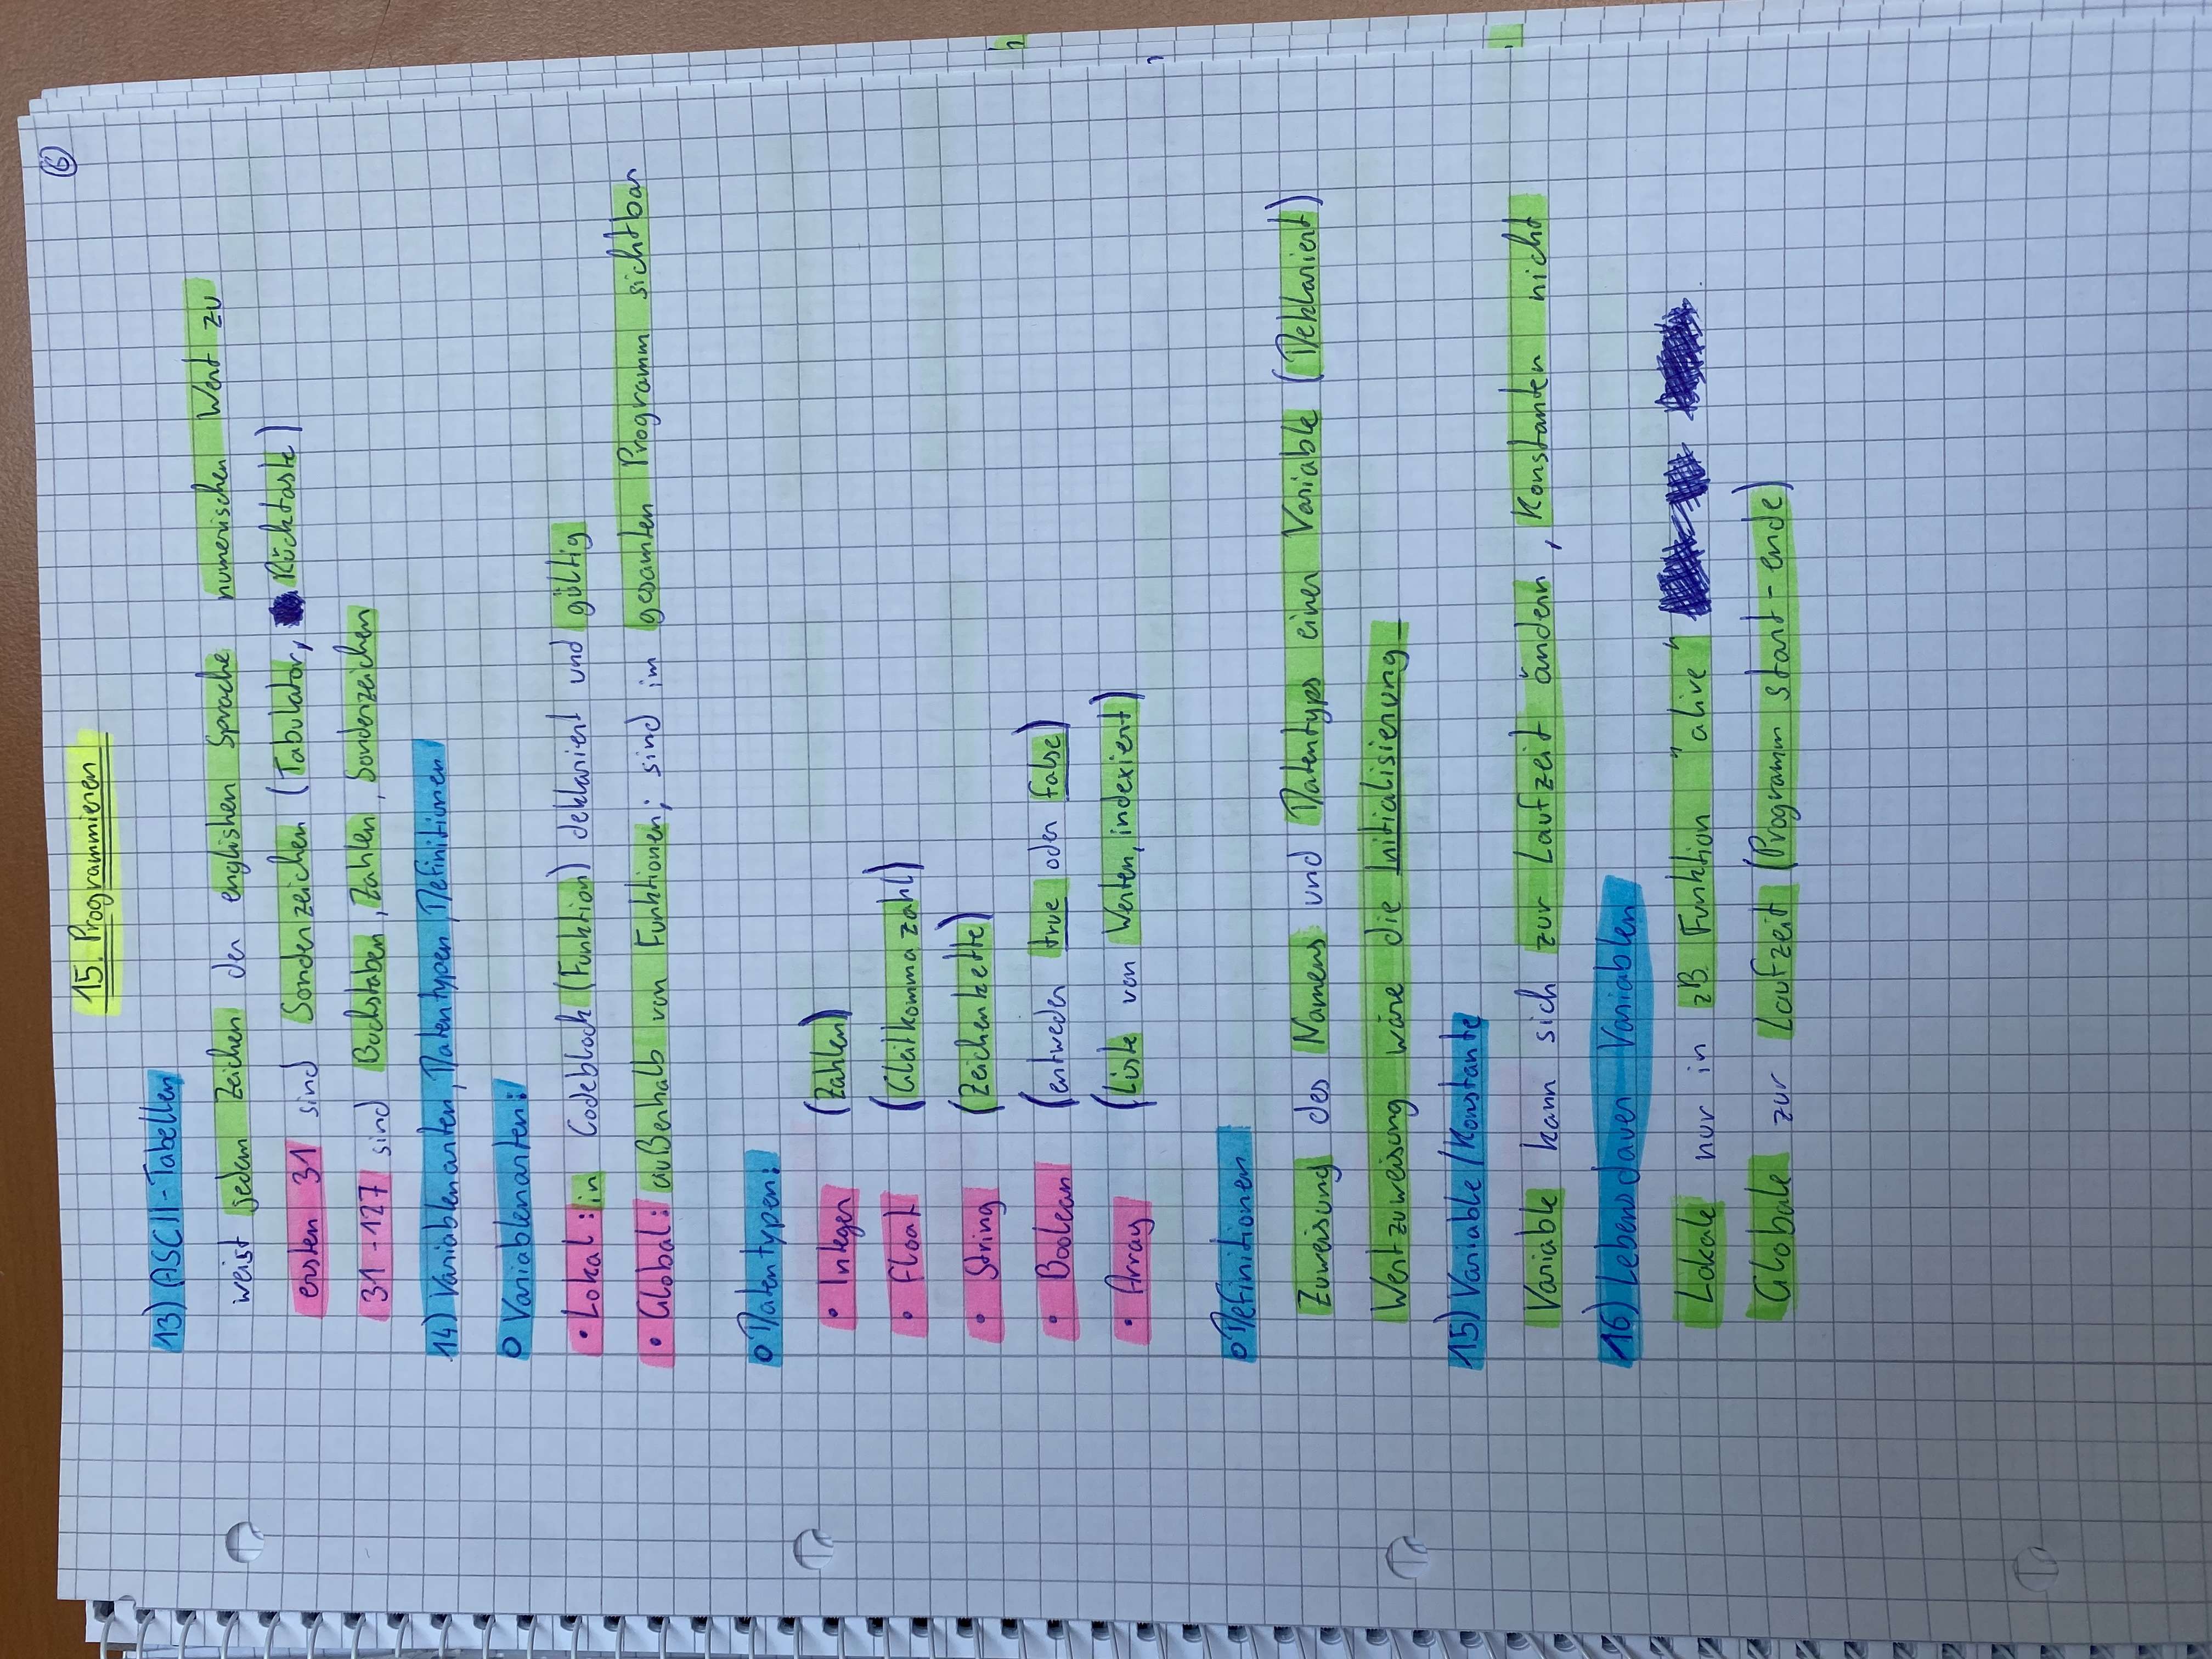 6
15. Programmieren
13) ASCII-Tabellen
weist jedem Zeichen der englishen Sprache numerischen Wert zu
ersten 31 sind Sonderzeichen (Tabulator, Rücktaste)
31-127 sind Buchstaben, Zahlen, Sonderzeichen
14) Variablenarten, Datentypen, Definitionen
o Variablenarten:
• Lokal: in Codeblock (Funktion) deklariert und gültig
• Global: außerhalb von Funktionen; sind im gesamten Programm sichtbar
o Datentypen:
• Integer (Zahlen)
• Float (Gleitkommazahl)
• String (Zeichenkette)
• Boolean (entweder true oder false)
• Array (Liste von Werten, indexiert)
o Definitionen
Zuweisung des Namens und Datentyps einer Variable (Deklariert)
Wertzuweisung wäre die Initialisierung
15) Variable/Konstante
Variable kann sich zur Laufzeit ändern, Konstanten nicht
16) Lebensdauer Variablen
Lokale nur in zB. Funktion "alive"
Globale zur Laufzeit (Programm start-ende)